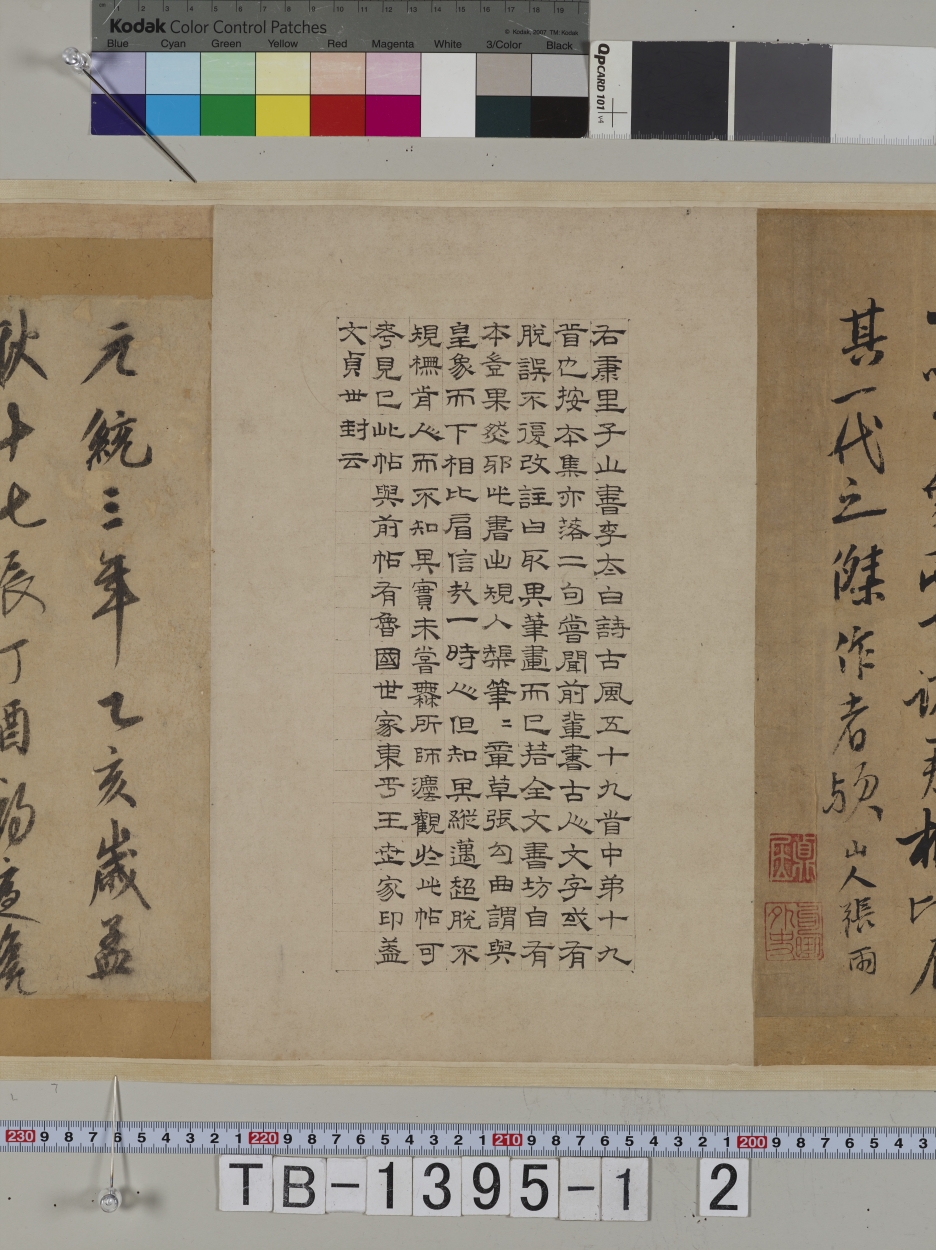 Kodak Color Control Patches
© Kodak, 2007 TM: Kodak
Blue Cyan Green Yellow Red Magenta White 3/Color Black
QPCARD 101 v4
其一代之傑作者歟
山人張雨
右康里子山書李太白詩古風五十九首中弟十九
首也按本集亦落二句嘗聞前輩書古人文字或有
脫誤不復改註曰取其筆畫而已若全文書坊自有
本豈果然邪此書出規人榘筆〻章草張勾曲謂與
皇象而下相比肩信哉一時人但知其縱邁超脫不
規橅肯人而不知其實未嘗無所師灋觀於此帖可
考見已此帖與前帖有魯國世家東平王世家印蓋
文貞世封云
元統三年乙亥歲孟
秋十七辰丁酉
230 9 8 7 6 5 4 3 2 1 220 9 8 7 6 5 4 3 2 1 210 9 8 7 6 5 4 3 2 1 200 9 8 7 6 5 4 3
TB-1395-1 2